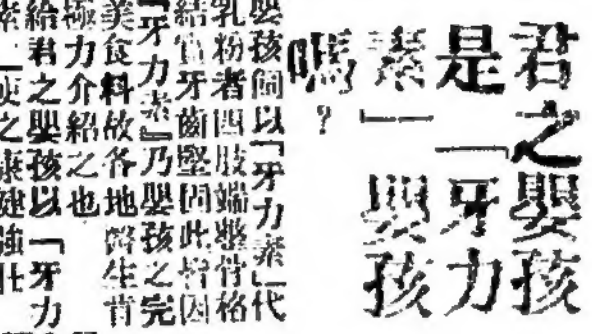 君之嬰孩
是「牙力
素」嬰孩
嗎?
嬰孩飼以「牙力素」代
乳粉者四肢端整骨格
結實牙齒堅固此皆因
『牙力素』乃嬰孩之完
美食料故各地醫生皆
極力介紹之也
給君之嬰孩以「牙力
素」使之康健強壯